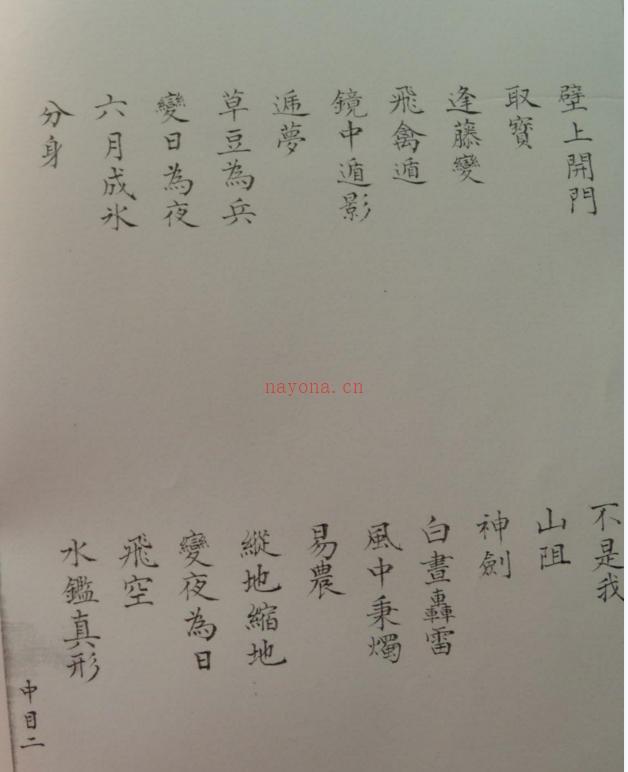 壁上開門
取寳
逢藤變
飛禽遁
鏡中遁影
遞夢
草豆為兵
變日為夜
六月成氷
分身
nayona.cn
不是我
山阻
神劍
白晝轟雷
風中秉燭
易農
縱地縮地
變夜為日
飛空
水鑑真形
中目二